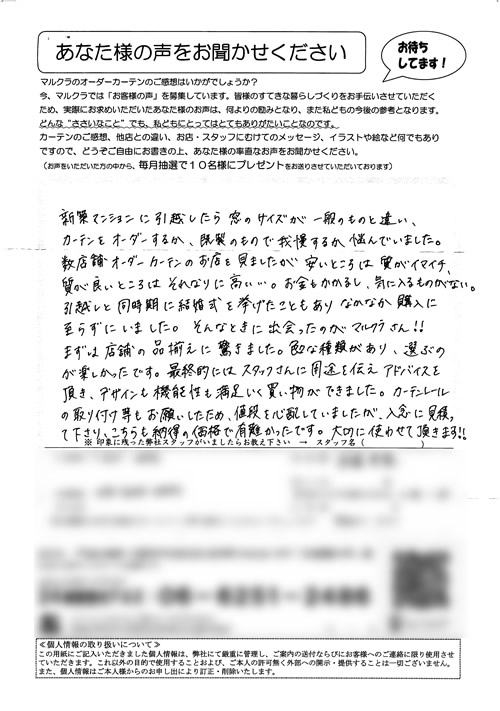 あなた様の声をお聞かせください
お待ち
してます！
マルクラのオーダーカーテンのご感想はいかがでしょうか？
今、マルクラでは「お客様の声」を募集しています。皆様のすてきな暮らしづくりをお手伝いさせていただく
ため、実際にお求めいただいたあなた様のお声は、何よりの励みとなり、また私どもの今後の参考となります。
どんな“ささいなこと”でも、私どもにとってはとてもありがたいことなのです。
カーテンのご感想、他店との違い、お店・スタッフにむけてのメッセージ、イラストや絵など何でもあり
ですので、どうぞご自由にお書きの上、あなた様の率直なお声をお聞かせください。
（お声をいただいた方の中から、毎月抽選で１０名様にプレゼントをお送りさせていただいております）
新築マンションに引越したら窓のサイズが一般のものと違い、
カーテンをオーダーするか、既製のもので我慢するか悩んでいました。
数店舗オーダーカーテンのお店を見ましたが安いところは質がイマイチ、
質が良いところはそれなりに高い…。お金もかかるし、気に入るものがない。
引越しと同時期に結婚式を挙げたこともありなかなか購入に
至らずにいました。そんなときに出会ったのがマルクラさん!!
まずは店舗の品揃えに驚きました。色んな種類があり、選ぶの
が楽しかったです。最終的にはスタッフさんに用途を伝えアドバイスを
頂き、デザインも機能性も満足いく買い物ができました。カーテンレール
の取り付け等もお願いしたため、値段を心配していましたが、入念に見積っ
て下さり、こちらも納得の価格で有難かったです。大切に使わせて頂きます!!
※ 印象に残った弊社スタッフがいましたらお教え下さい → スタッフ名（　　　　　）
06-6251-2486
≪個人情報の取り扱いについて≫
この用紙にご記入いただきました個人情報は、弊社にて厳重に管理し、ご案内の送付ならびにお客様へのご連絡に限り使用させ
ていただきます。これ以外の目的で使用することおよび、ご本人の許可無く外部への開示・提供することは一切ございません。
また、個人情報はご本人様からのお申し出により訂正・削除いたします。